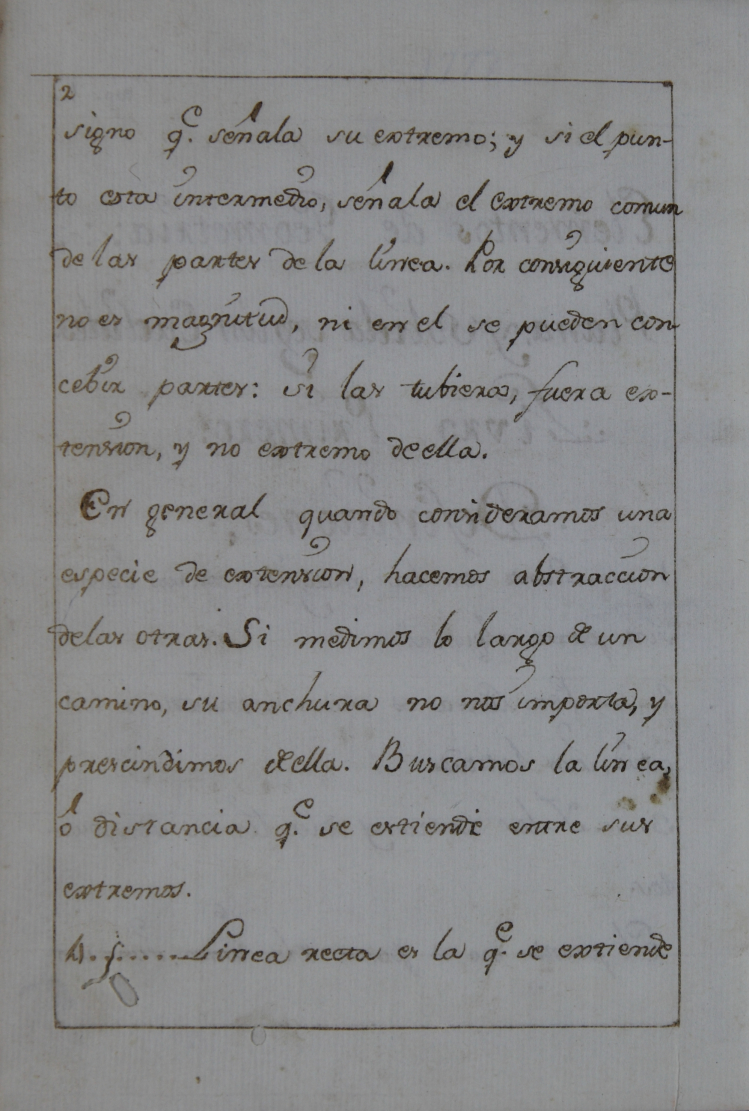 2
signo q.e señala su extremo; y si el pun-
to esta intermedio, señala el extremo comun
de las partes de la linea. Por consiguiente
no es magnitud, ni en el se pueden con
cebir partes: si las tubiera, fuera ex-
tension, y no extremo de ella.
En general quando consideramos una
especie de extension, hacemos abstraccion
delas otras. Si medimos lo largo de un
camino, su anchura no nos importa, y
prescindimos de ella. Buscamos la linea,
ó distancia q.e se extiende entre sus
extremos.
Linea recta es la q.e se extiende